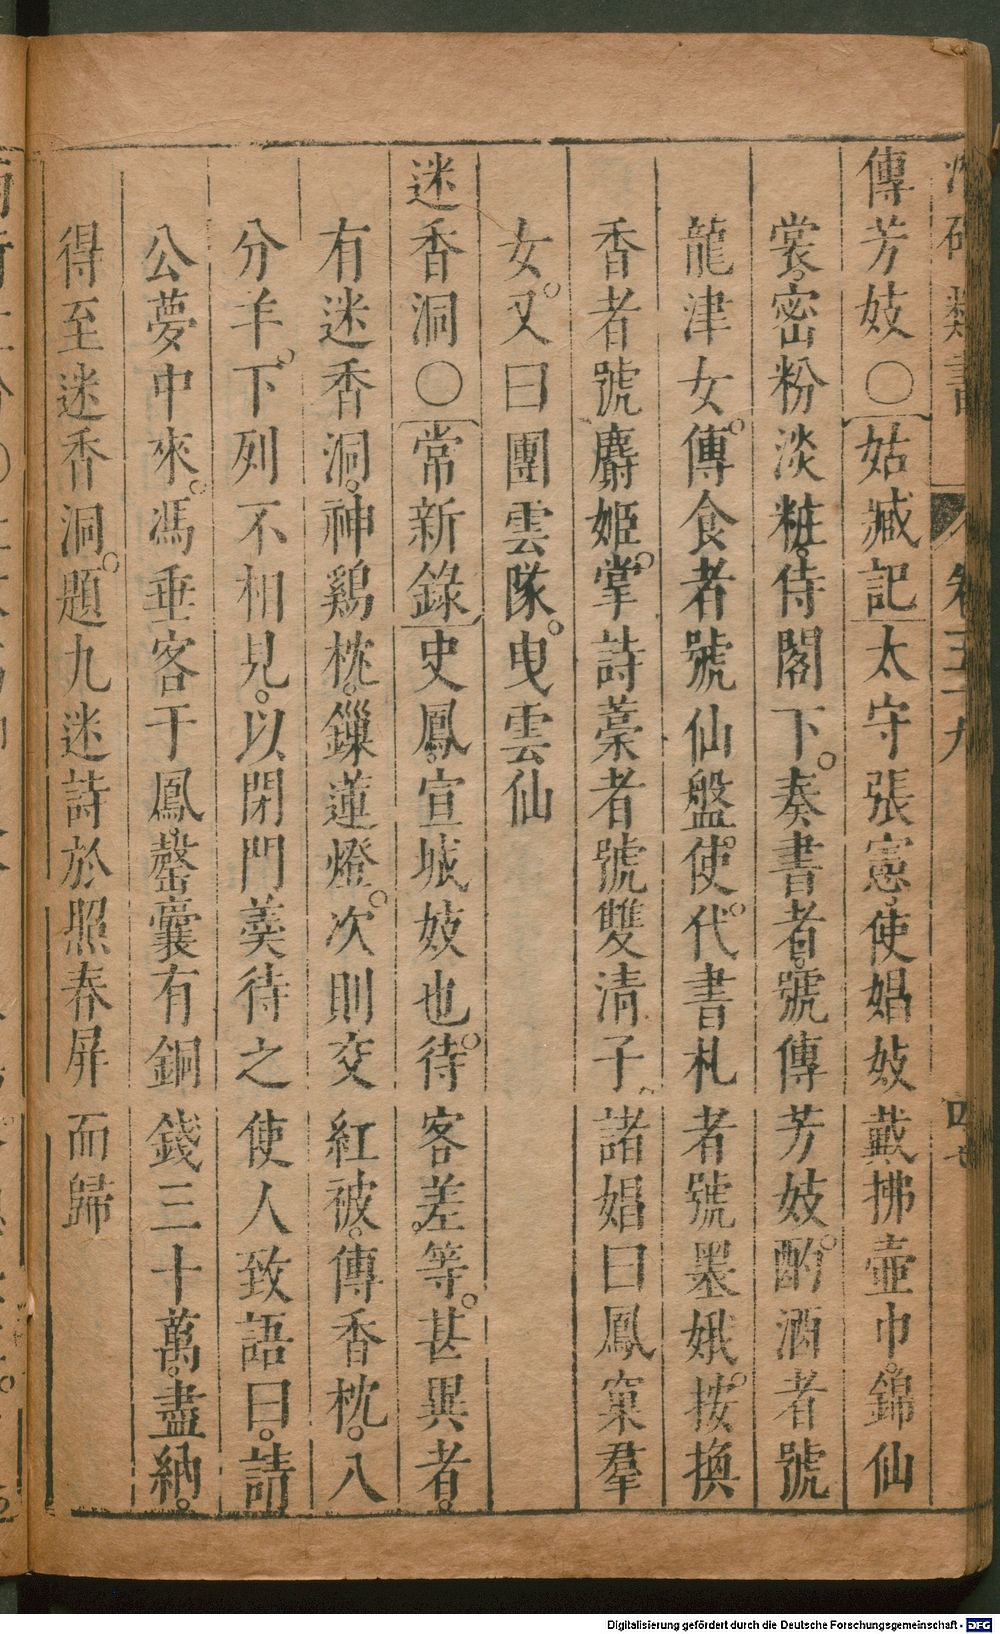 卷五十九
傳芳妓〇姑臧記太守張憲使娼妓戴拂壺巾。錦仙
裳。密粉淡粧。侍閣下。奏書者。號傳芳妓。酌酒者號
龍津女。傳食者號仙盤使。代書札者號墨娥。按換
香者號麝姬。掌詩藁者號雙清子。諸娼曰鳳窠羣
女。又曰團雲隊。曳雲仙
迷香洞〇常新錄史鳳。宣城妓也。待客差等。甚異者。
有迷香洞。神鷄枕。鏁蓮燈。次則交紅被。傳香枕。八
分羊。下列不相見。以閉門羹待之使人致語曰。請
公夢中來。馮垂客于鳳。罄囊有銅錢三十萬。盡納。
得至迷香洞。題九迷詩於照春屏而歸
Digitalisierung gefördert durch die Deutsche Forschungsgemeinschaft - DFG